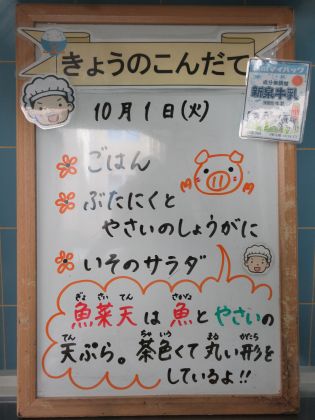 きょうのこんだて
10月1日(火)
ごはん
ぶたにくと
やさいのしょうがに
いそのサラダ
ぎょ さい てん さかな
魚菜天は魚とやさいの
てん ちゃ いろ まる かたち
天ぷら。茶色くて丸い形を
しているよ!!
新泉牛乳